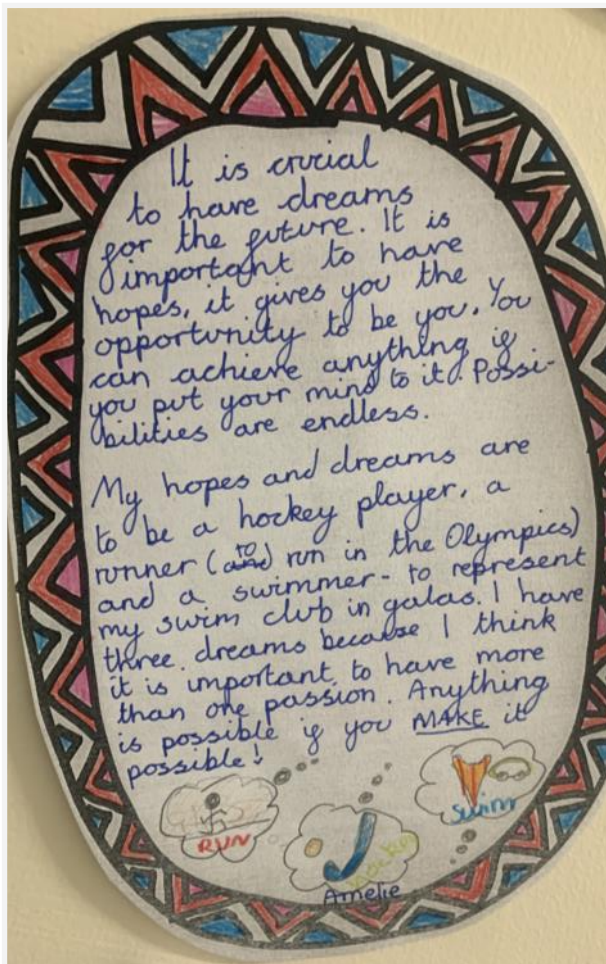 It is crucial
to have dreams
for the future. It is
important to have
hopes, it gives you the
opportunity to be you. You
can achieve anything if
you put your mind to it. Possi-
bilities are endless.
My hopes and dreams are
to be a hockey player, a
runner (to run in the Olympics)
and a swimmer- to represent
my swim club in galas. I have
three dreams because I think
it is important to have more
than one passion. Anything
is possible if you MAKE it
possible!
Swim
RUN
Hockey
Amelie